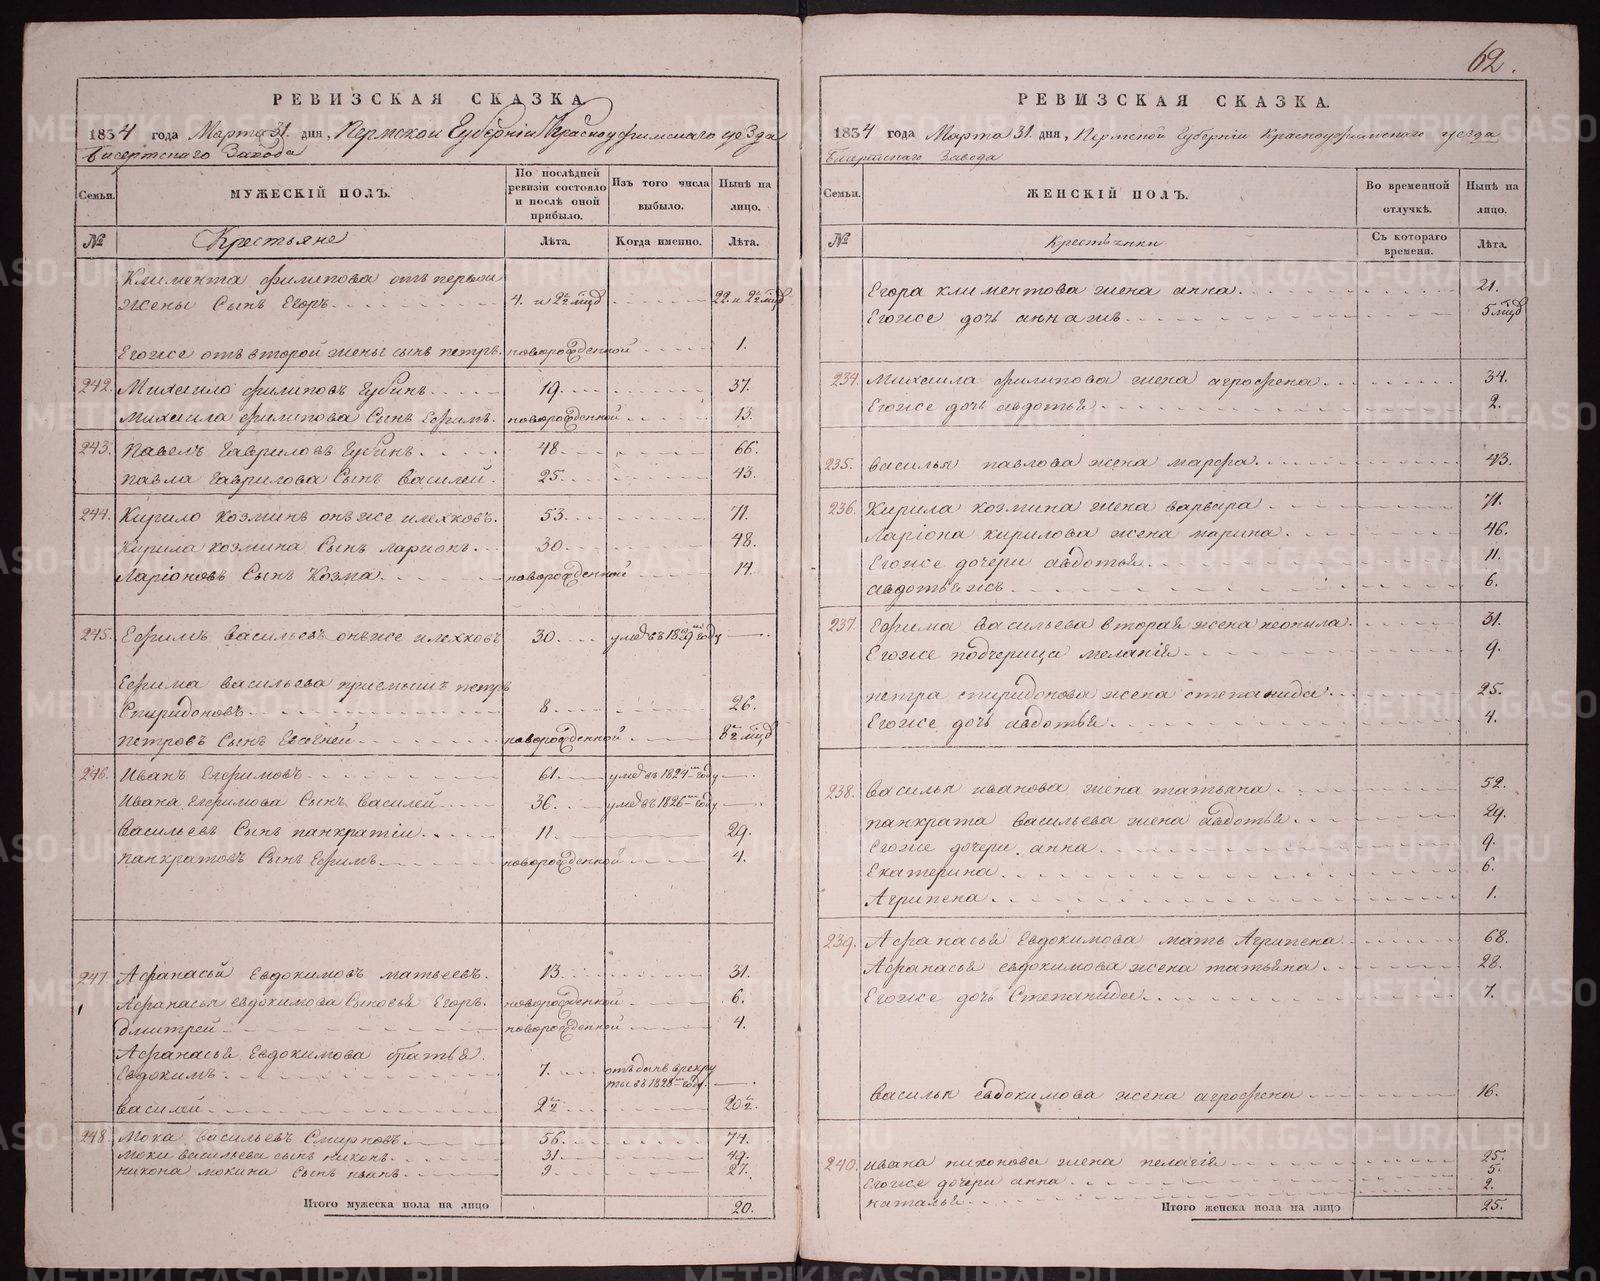 62.
РЕВИЗСКАЯ СКАЗКА
1834 года Марта 31. дня, Пермской Губерніи Красноуфимскаго уезда
Бисертскаго Завода
Семьи. МУЖЕСКІЙ ПОЛЪ. По послѣдней ревизіи состояло и послѣ оной прибыло. Изъ того числа выбыло. Нынѣ на лицо.
№ Крестьяне Лѣта. Когда именно. Лѣта.
Климента филипова отъ первой
жены Сынъ Егоръ 4. и 2 1/2 мцъ 22. и 2 1/2 мцъ
Егоже отъ второй жены сынъ петръ. новорожденной 1.
242. Михаило филиповъ Губинъ. 19. 37.
Михаила филипова Сынъ Ефимъ. новорожденной 13.
243. Павелъ Гавриловъ Губинъ. 48. 66.
павла Гаврилова Сынъ Василей. 25. 43.
244. Кирило козминъ онъже плехковъ. 53. 71.
Кирила козмина Сынъ ларионъ. 30. 48.
Ларіоновъ Сынъ Козма. новорожденной 14.
245. Ефимъ васильевъ онъже плехковъ 30. умре въ 1829 году
Ефима васильева приемышъ петръ
Спиридоновъ. 8. 26.
петровъ Сынъ Евсегней новорожденной 8 1/2 мцъ
246. Иванъ Ефимовъ. 61. умре въ 1824 году
Ивана Ефимова Сынъ василей 36. умре въ 1826 году
васильевъ Сынъ панкратіи. 11. 29.
панкратовъ Сынъ Ефимъ. новорожденной 4.
247. Афанасьй Евдокимовъ матвеевъ. 13. 31.
Афанасья евдокимова Сыновья Егоръ. новорожденной 6.
дмитрей новорожденной 4.
Афанасья Евдокимова братья.
Евдокимъ. 7. отъдычъ врекру
ты въ 1828 году.
василей 2 1/2 20 1/2.
248. Мока васильевъ Смирновъ. 56. 74.
Моки васильева сынъ никонъ. 31. 49.
никона мокина Сынъ иванъ. 9. 27.
Итого мужеска пола на лицо 20.
РЕВИЗСКАЯ СКАЗКА.
1834 года Марта 31. дня, Пермской Губерніи Красноуфимскаго уезда
Бисертскаго Завода
Семьи. ЖЕНСКІЙ ПОЛЪ. Во временной отлучкѣ. Нынѣ на лицо.
№ Крестьянки Съ котораго времени. Лѣта.
Егора климентова жена анна. 21.
Егоже дочь анна жъ. 5 мцъ
234. Михаила филипова жена агрофена. 34.
Егоже дочь авдотья 2.
235. василья павлова жена марфа. 43.
236. Кирила козмина жена варвара 71.
Ларіона кирилова жена марина. 46.
Егоже дочери авдотья. 11.
авдотья жъ. 6.
237. Ефима васильева вторая жена неонила. 31.
Егоже подчерица меланія 9.
петра спиридонова жена степанида. 25.
Егоже дочь авдотья. 4.
238. василья иванова жена татьяна. 52.
панкрата васильева жена авдотья. 29.
Егоже дочери анна. 9.
Екатерина. 6.
Агрипена. 1.
239. Афанасья Евдокимова мать Агрипена. 68.
Афанасья евдокимова жена татьяна. 28.
Егоже дочь Степанида. 7.
василья евдокимова жена агрофена 16.
240. ивана никонова жена пелагія 25.
Егоже дочери анна 5.
наталья. 2.
Итого женска пола на лицо 25.